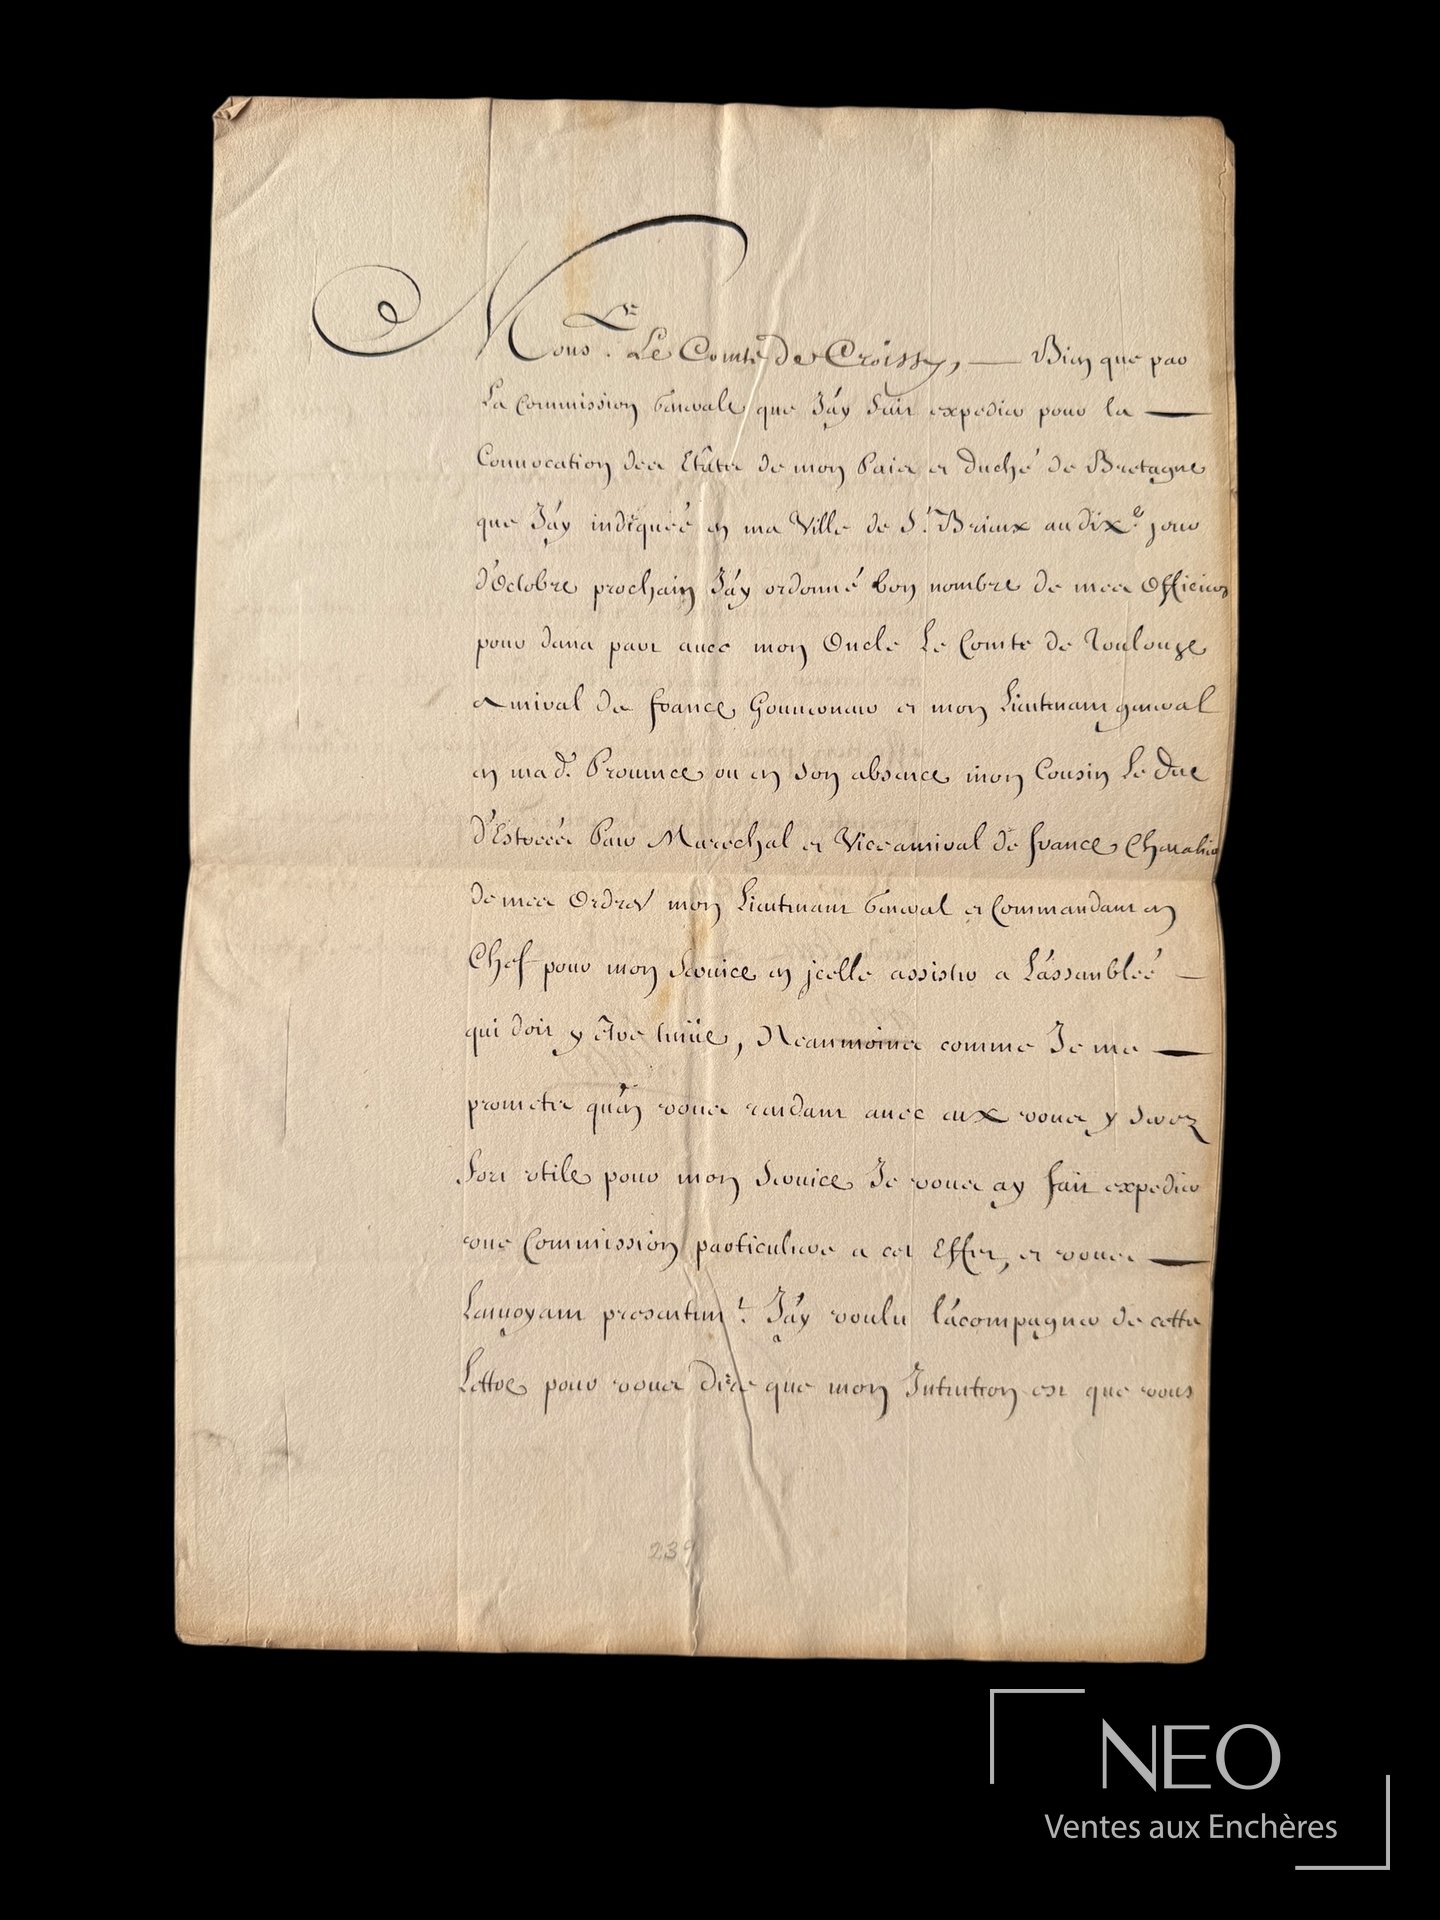 Mons.r Le Comte de Croissy, Bien que par
La Commission Generale que J'ay fait expedier pour la
Convocation des Etats de mon Païs et Duché de Bretagne
que J'ay indiqueé en ma Ville de S.t Brieux au dix.e jour
d'Octobre prochain J'ay ordonné bon nombre de mes Officiers
pour dans peu avec mon Oncle Le Comte de Toulouze
Amiral de france, Gouverneur et mon Lieutenant general
en mad. Province ou en son absence mon Cousin Le Duc
d'Estreés Pair Marechal et Viceamiral de france, Chevalier
de mes Ordres mon Lieutenant General et Commandant en
Chef pour mon Service en jcelle assister a L'assembleé
qui doit y être tenüe, Neanmoins comme Je me
promets qu'en vous rendant avec eux vous y serez
fort vtile pour mon Service Je vous ay fait expedier
vne Commission particuliere a cet Effet, et vous
Lenvoyant presentem.t J'ay voulu l'acompagner de cette
Lettre pour vous dire que mon Intention est que vous
239
NEO
Ventes aux Enchères